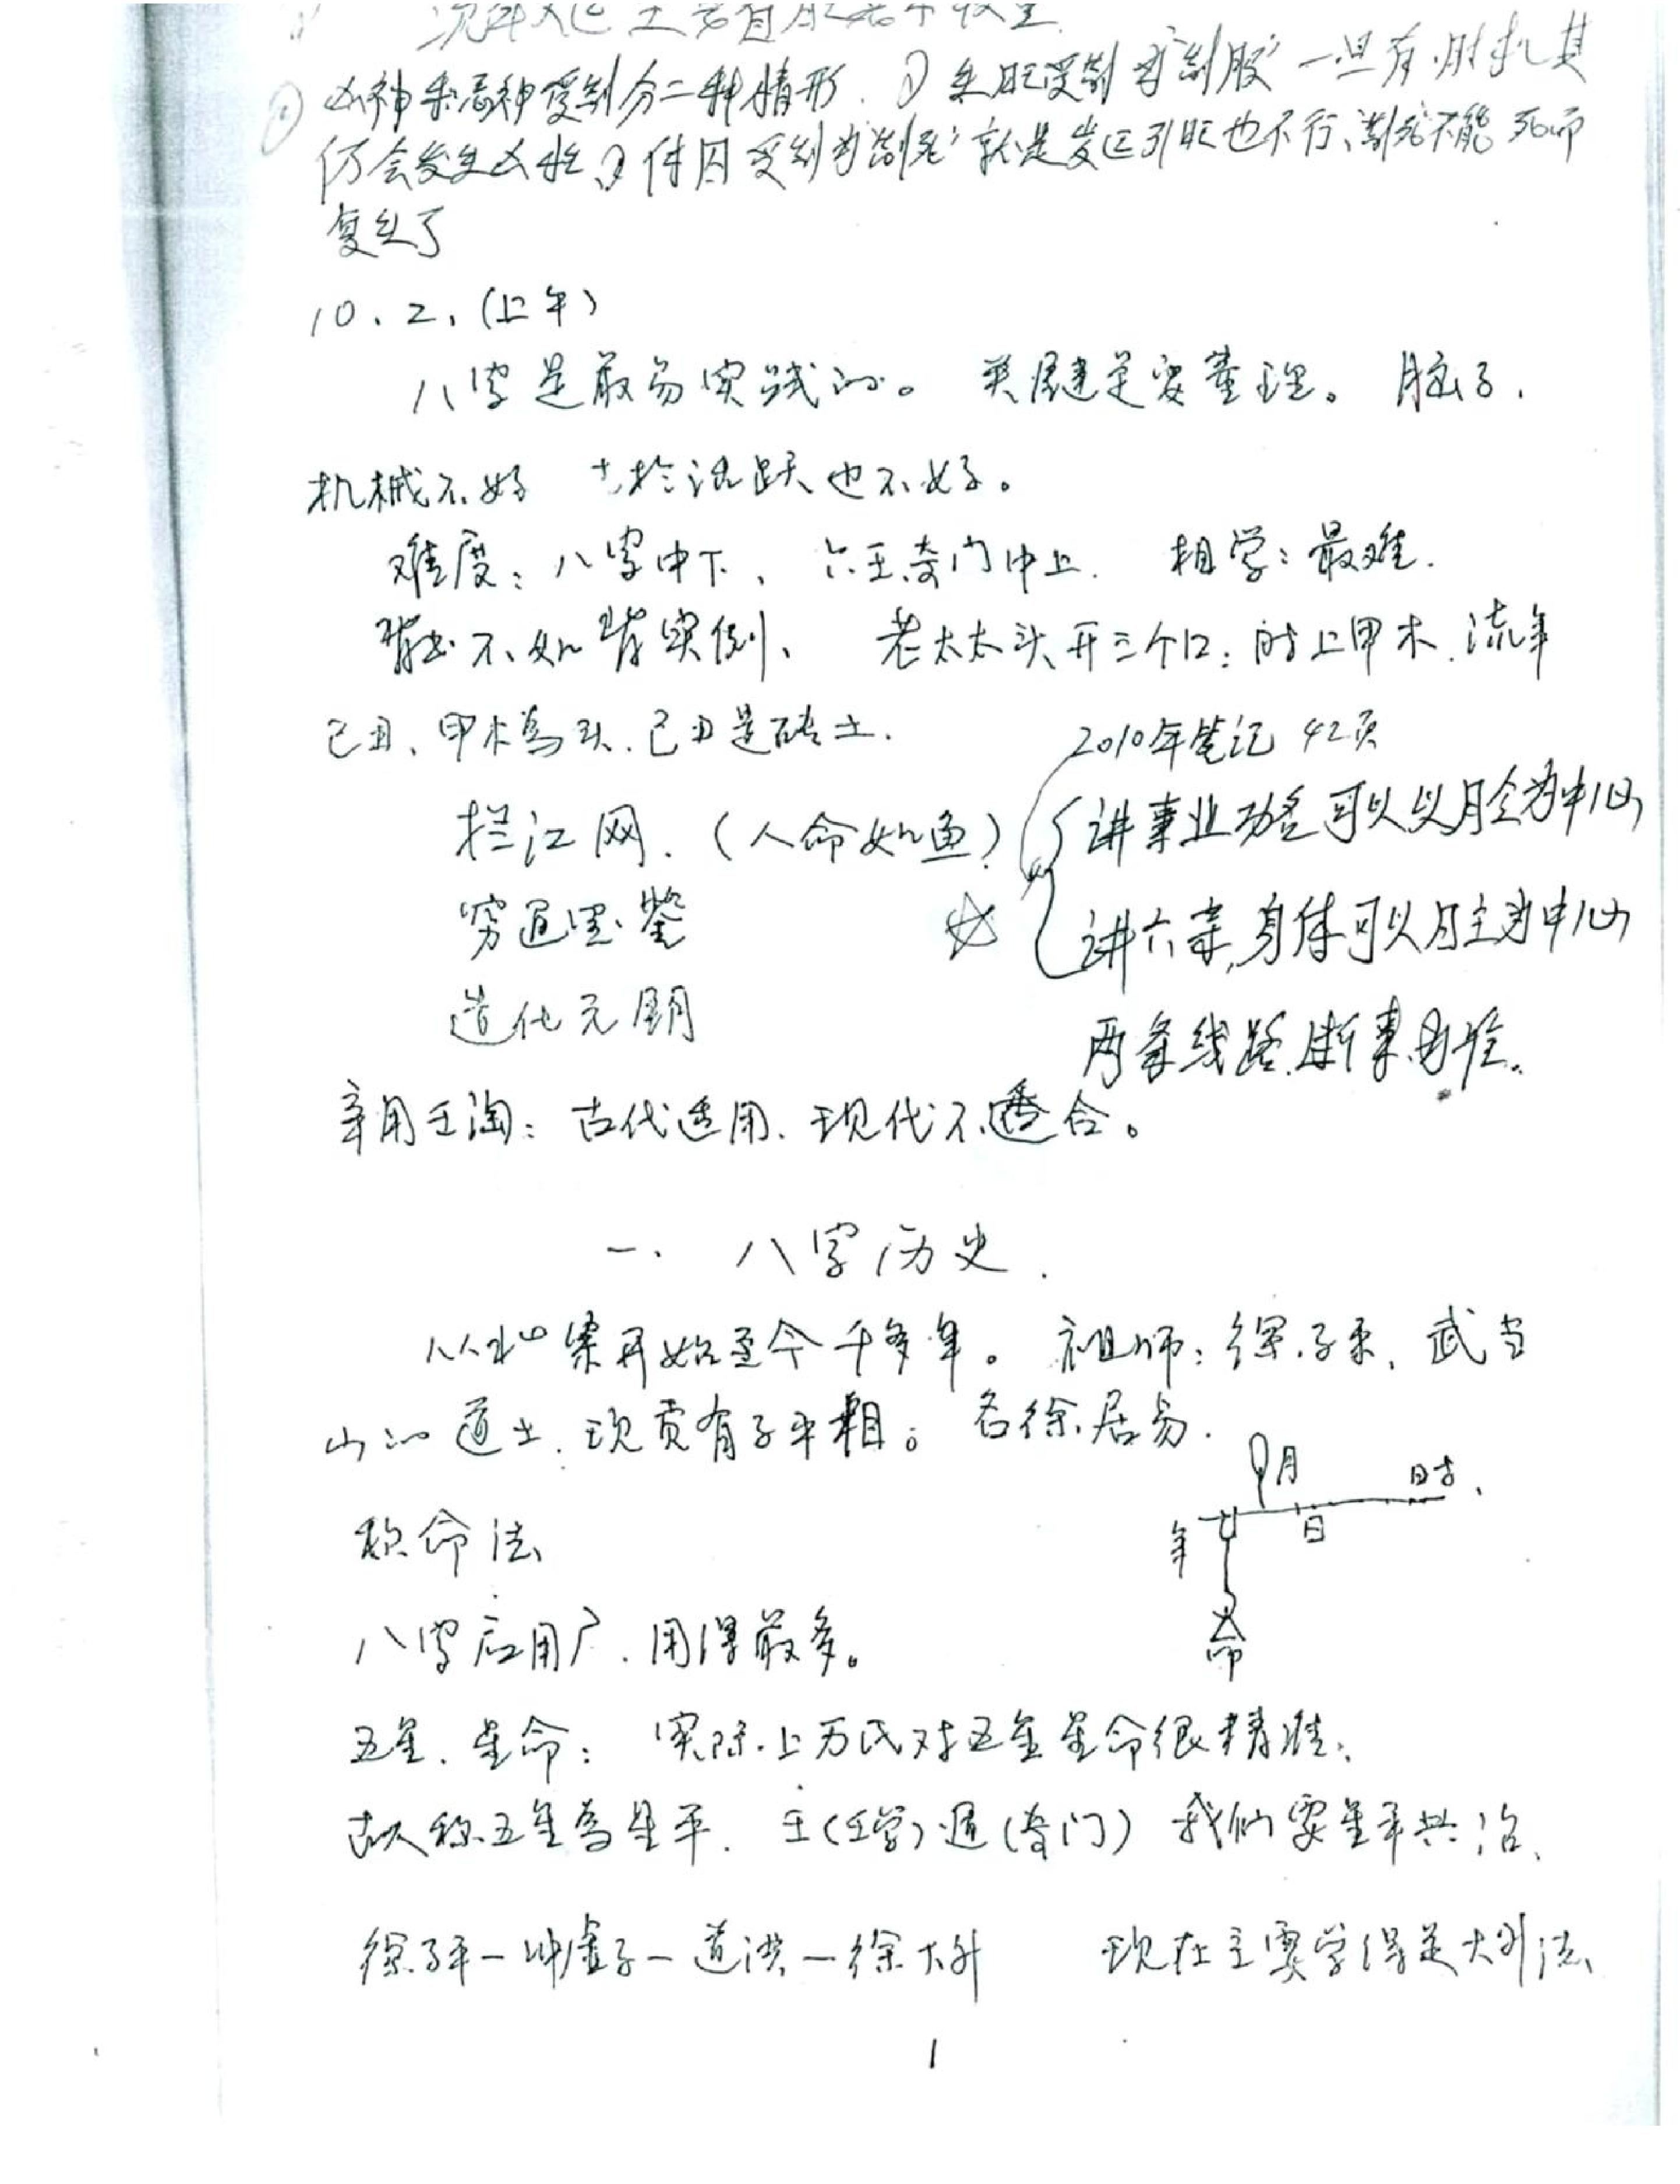 凶神乘忌神受制分二种情形.①乘旺受制为“制服”一旦有时机其
仍会发生凶性②休囚受制为“制死”就是岁运引旺也不行、制死不能死而
复生了
10.2.(上午)
八字是最易实践的。关键是要整理。脑子.
机械不好 太于活跃也不好。
难度:八字中下、六壬奇门中上. 相学:最难.
背书不如背实例、老太太头开三个口:时上甲木.流年
己丑、甲木为头.己丑是砖土.
2010年笔记 42页
拦江网.(人命如鱼)
讲事业功名可以以月令为中心
穷通宝鉴
☆ 讲六亲,身体可以日主为中心
造化元钥
两条线路.断事.易验。
辛用壬淘:古代适用.现代不适合。
一、八字历史.
从北宋开始至今千多年。祖师:徐子平,武当
山的道士.现贡有子平相。名徐居易.
月 时.
年 日
称命法
命
八字应用广.用得最多。
五星.星命:实际上万民对五星星命很精准.
故人称五星为星平.壬(壬学)遁(奇门)我们要星平共治.
徐子平—冲虚子—道洪—徐大升 现在主要学得是大升法
1